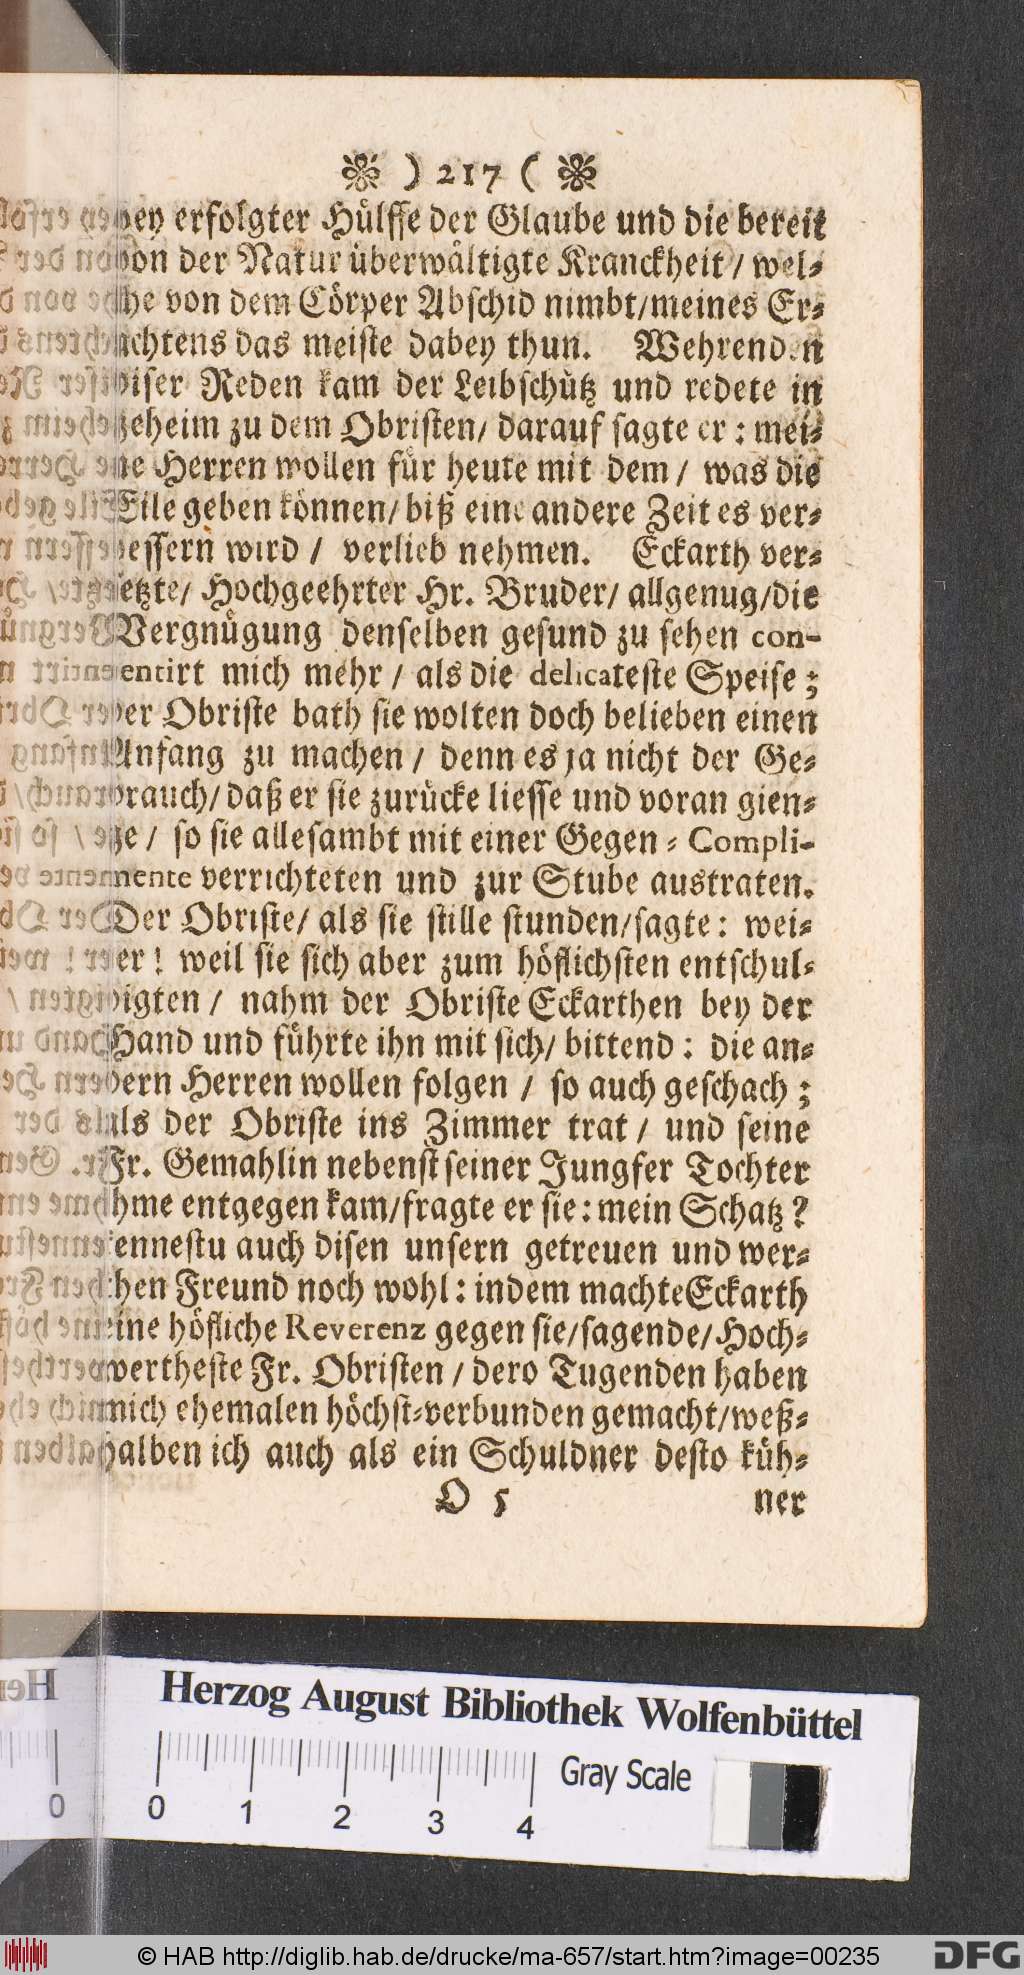 ) 217 (
bey erfolgter Hülffe der Glaube und die bereit
von der Natur überwältigte Kranckheit / wel-
che von dem Cörper Abschid nimbt/meines Er-
achtens das meiste dabey thun. Wehrenden
diser Reden kam der Leibschütz und redete in
geheim zu dem Obristen/ darauf sagte er: mei-
ne Herren wollen für heute mit dem / was die
Eile geben können/ biß eine andere Zeit es ver-
bessern wird / verlieb nehmen. Eckarth ver-
setzte/ Hochgeehrter Hr. Bruder/ allgenug/die
Vergnügung denselben gesund zu sehen con-
tentirt mich mehr / als die delicateste Speise;
der Obriste bath sie wolten doch belieben einen
Anfang zu machen / denn es ja nicht der Ge-
brauch/ daß er sie zurücke liesse und voran gien-
ge / so sie allesambt mit einer Gegen-Compli-
mente verrichteten und zur Stube austraten.
Der Obriste/ als sie stille stunden/sagte: wei-
ter! weil sie sich aber zum höflichsten entschul-
digten / nahm der Obriste Eckarthen bey der
Hand und führte ihn mit sich/ bittend: die an-
dern Herren wollen folgen / so auch geschach;
als der Obriste ins Zimmer trat / und seine
Fr. Gemahlin nebenst seiner Jungfer Tochter
ihme entgegen kam/fragte er sie: mein Schatz?
kennestu auch disen unsern getreuen und wer-
then Freund noch wohl: indem machte Eckarth
eine höfliche Reverenz gegen sie/sagende/Hoch-
wertheste Fr. Obristen / dero Tugenden haben
mich ehemalen höchst-verbunden gemacht/weß-
halben ich auch als ein Schuldner desto küh-
O 5 ner
Herzog August Bibliothek Wolfenbüttel
0 0 1 2 3 4 Gray Scale
© HAB http://diglib.hab.de/drucke/ma-657/start.htm?image=00235 DFG